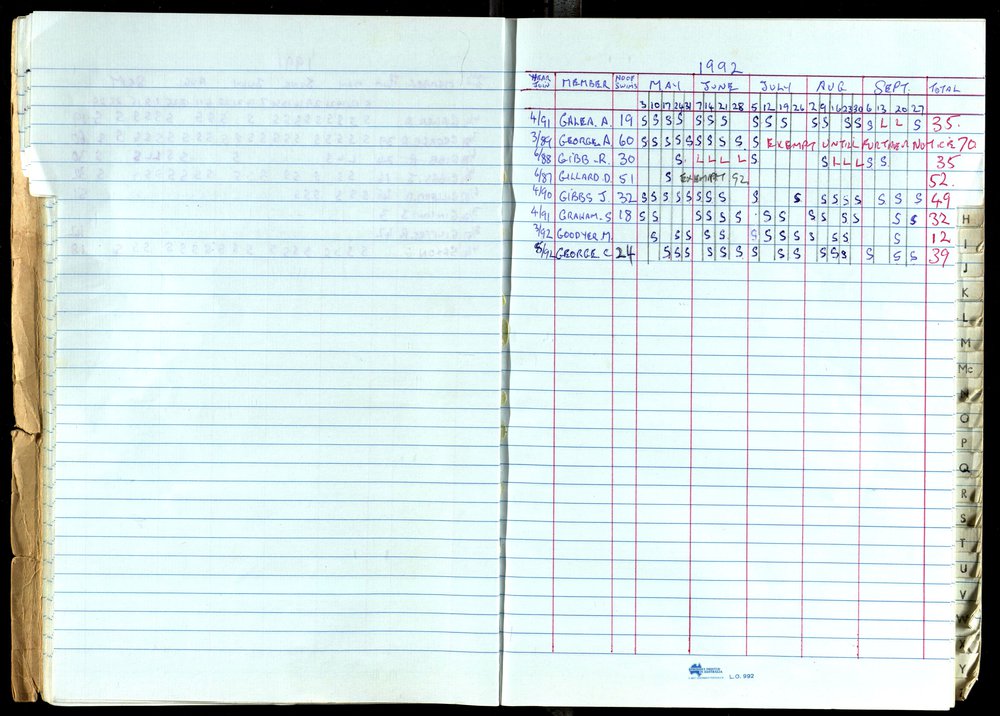 1992
YEAR JOIN MEMBER NO OF SWIMS MAY JUNE JULY AUG SEPT. TOTAL
3 10 17 24 31 7 14 21 28 5 12 19 26 2 9 16 23 30 6 13 20 27
4/91 GALEA. A. 19 S S S S S S S S S S S S S S S L L S 35.
3/89 GEORGE. A. 60 S S S S S S S S S S EXEMPT UNTIL FURTHER NOTICE 70
6/88 GIBB - R. 30 S L L L L S S L L L S S 35
6/87 GILLARD. D. 51 S EXEMPT 92 52.
4/90 GIBBS J. 32 S S S S S S S S S S S S S S S S S 49
4/91 GRAHAM. S 18 S S S S S S S S S S S S S S 32
3/92 GOODYER M. S S S S S S S S S S S S S 12
5/92 GEORGE C 24 S S S S S S S S S S S S S S S S 39
H
I
J
K
L
M
Mc
N
O
P
Q
R
S
T
U
V
W
X
Y
L.O. 992